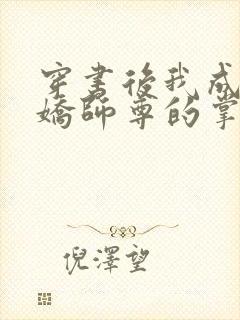 穿書後我成
嬌師尊的掌
倪澤望